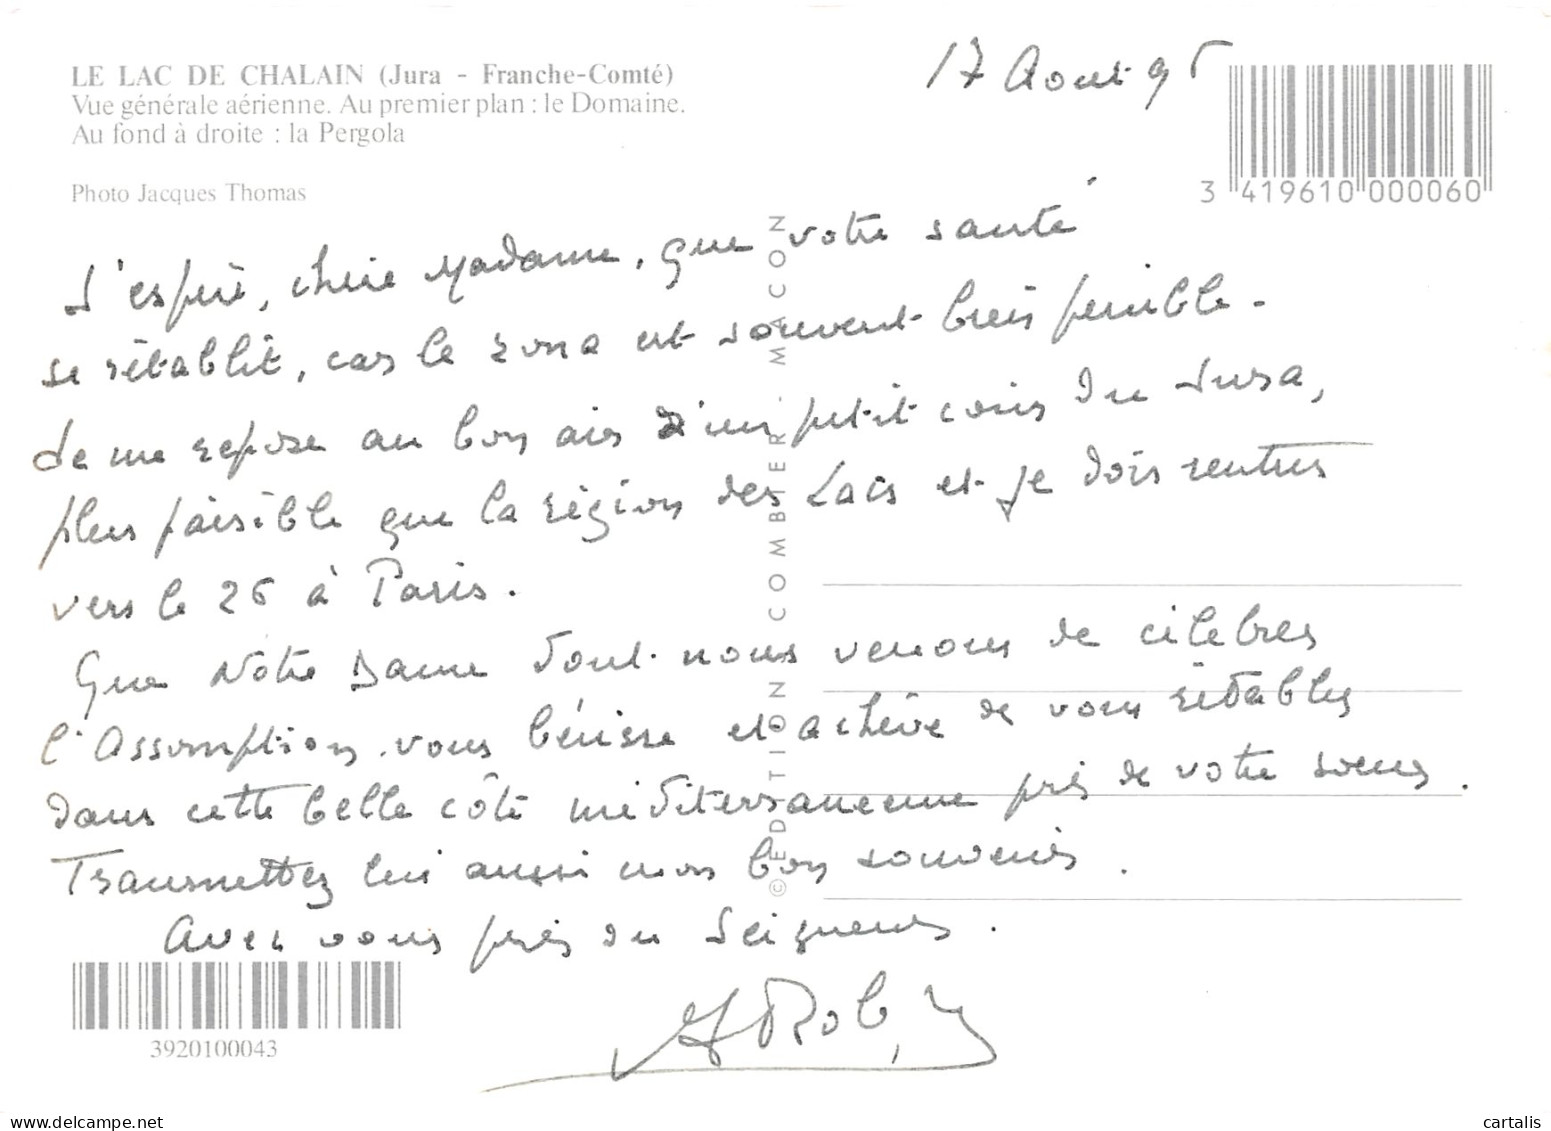 LE LAC DE CHALAIN (Jura - Franche-Comté)
Vue générale aérienne. Au premier plan : le Domaine.
Au fond à droite : la Pergola
Photo Jacques Thomas
17 Aout 95
3 419610 000060
J'espère, chère Madame, que votre santé
se rétablit, car le zona est souvent bien pénible.
Je me repose au bon air d'un petit coin du Jura,
plus paisible que la région des Lacs et je dois rentrer
vers le 26 à Paris.
Que Notre Dame dont nous venons de célébrer
l'Assomption vous bénisse et achève de vous rétablir
dans cette belle côte méditerranéenne près de votre soeur.
Transmettez lui aussi mon bon souvenir.
Avec vous près du Seigneur.
Robin
3920100043
© EDITION COMBIER MACON
www.delcampe.net
cartalis